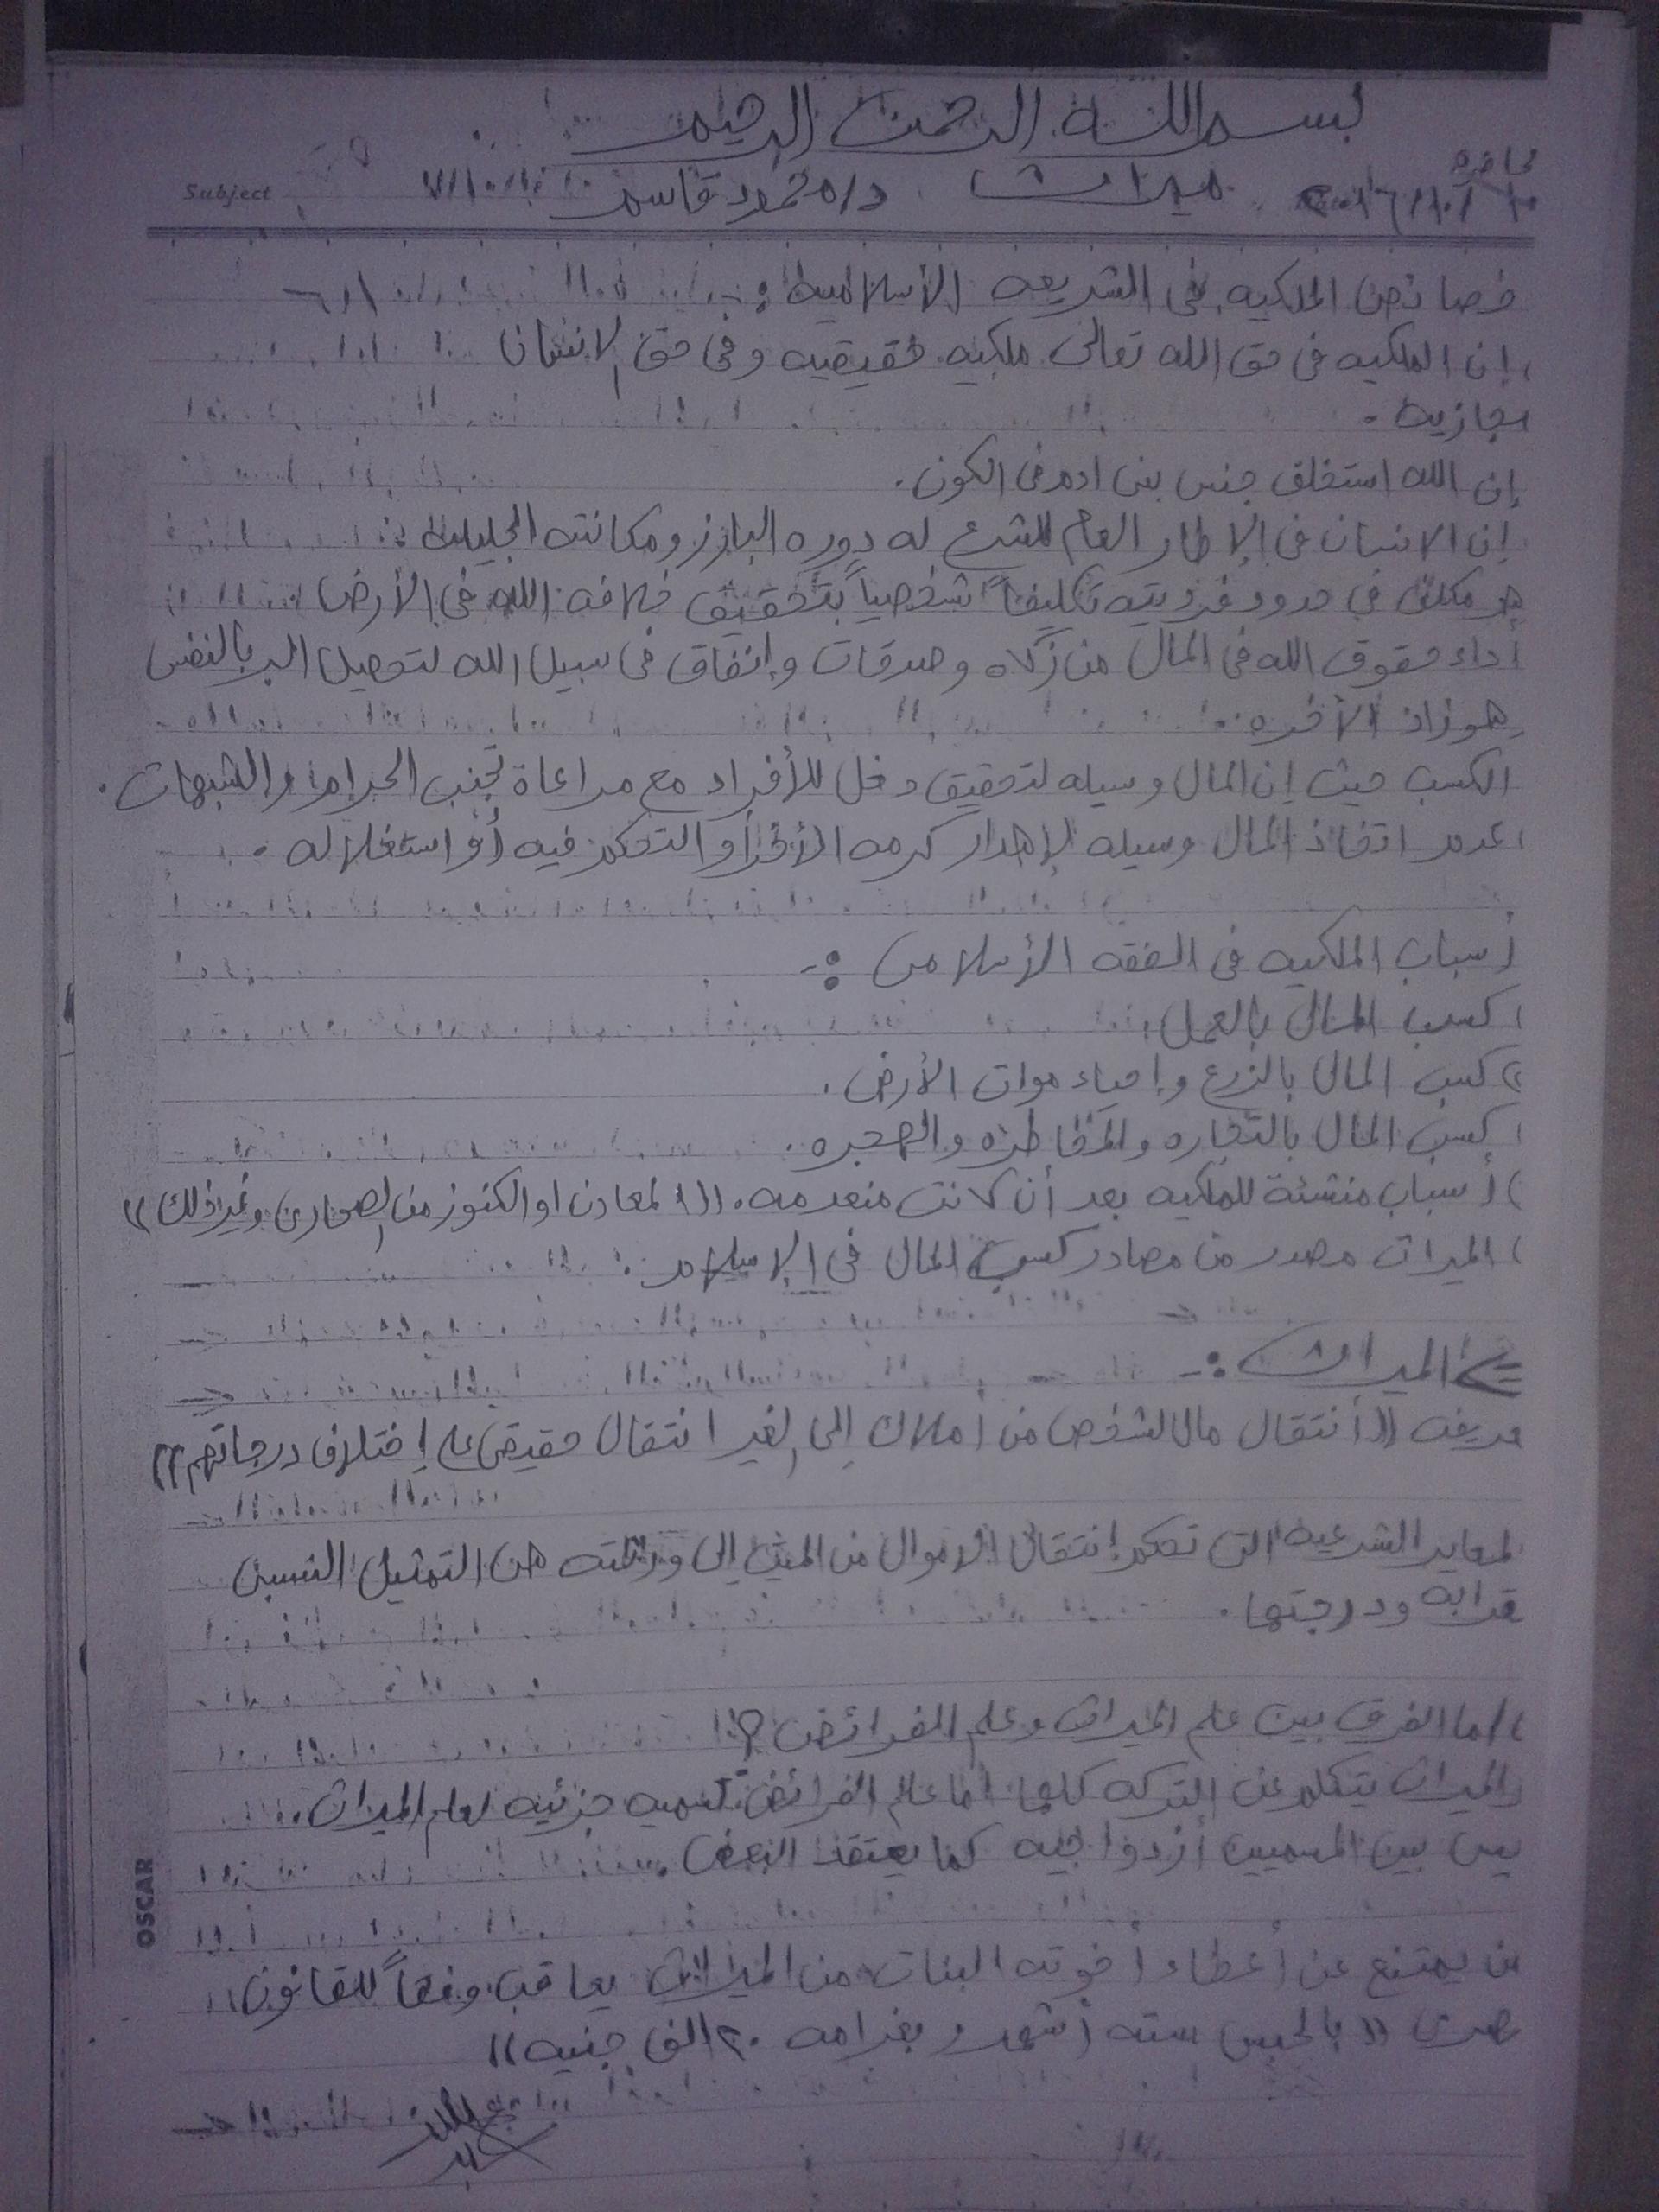 بسم الله الرحمن الرحيم
محاضرة
Subject ميراث د/ محمود قاسم
خصائص الملكيه فى الشريعه الأسلاميه :
إن الملكيه فى حق الله تعالى ملكيه حقيقيه وفى حق الانسان
مجازيه .
إن الله استخلف جنس بنى ادم فى الكون .
إن الانسان فى الإطار العام للشرع له دوره البارز ومكانته الجليله
هو مكلف فى حدود فرديته تكليفاً شخصياً بتحقيق خلافه الله فى الأرض
أداء حقوق الله فى المال من زكاه وصدقات وإنفاق فى سبيل الله لتحصيل البر بالنفس
وهو زاد الأخره
الكسب حيث إن المال وسيله لتحقيق دخل للأفراد مع مراعاة تجنب الحرام والشبهات .
عدم اتخاذ المال وسيله لإهدار كرمه الأخر أو التحكم فيه أو استغلاله .
أسباب الملكيه فى الفقه الأسلامى :-
كسب المال بالعمل .
٢) كسب المال بالزرع وإحياء موات الأرض .
كسب المال بالتجاره والمخاطره والهجره .
) أسباب منشئة للملكيه بعد أن كانت منعدمه . (( المعادن او الكنوز من الصحارى وغير ذلك ))
) الميراث مصدر من مصادر كسب المال فى الإسلام .
الميراث :-
عريفه (( أنتقال مال لشخص من أملاك إلى الغير انتقال حقيقى على إختلاف درجاتهم ))
لمعاير الشرعيه التى تحكم إنتقال الاموال من الميت إلى ورثته هى التمثيل النسبى
قرابه ودرجتها .
) ما الفرق بين علم الميراث وعلم الفرائض ؟!
الميراث يتكلم عن التركه كلها أما علم الفرائض تسميه جزئيه لعلم الميراث .
يس بين المسميين أزدواجيه كما يعتقد البعض .
من يمتنع عن أعطاء أخوته البنات من الميراث يعاقب وفقاً للقانون
صرى (( بالحبس سته أشهر وبغرامه ٢٠ الف جنيه ))
OSCAR